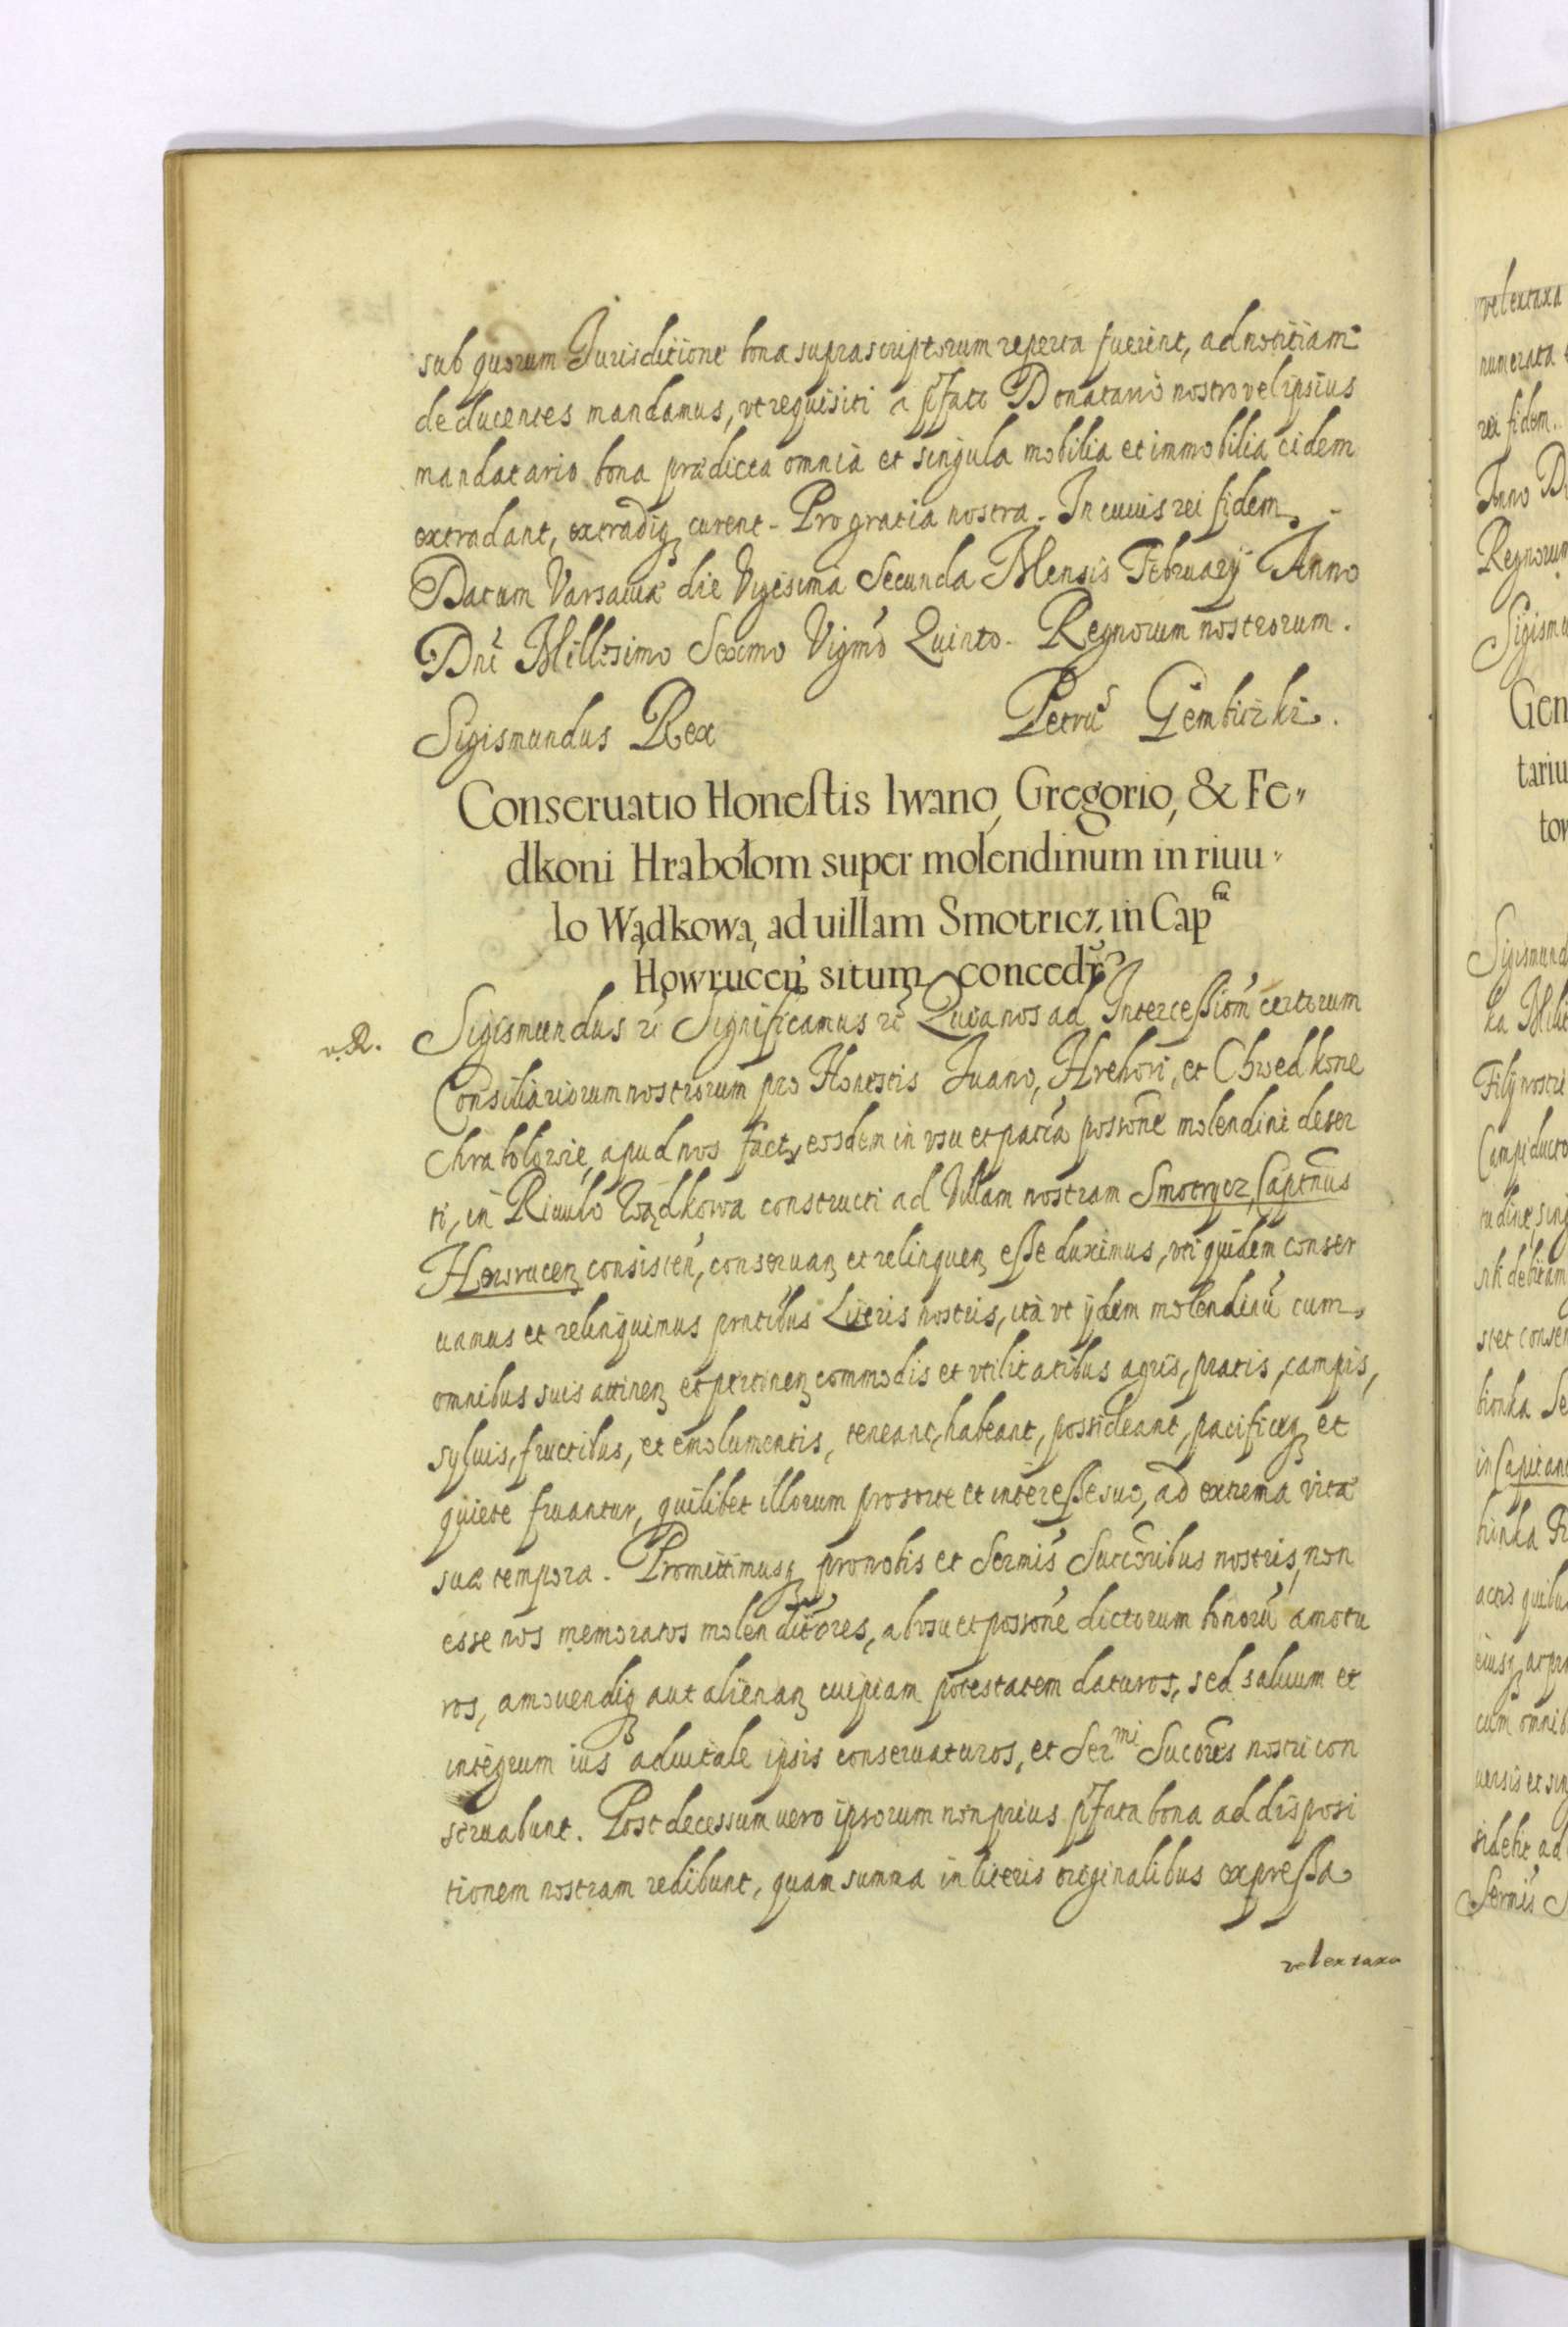 sub quorum Jurisditione bona suprascriptorum reperta fuerint, ad notitiam
deducentes mandamus, vt requisiti a pfato Donatario nostro vel ipsius
mandatario bona prædicta omnia et singula mobilia et immobilia eidem
extradant, extradiq curent - Pro gratia nostra. In cuius rei fidem
Datum Varsauiæ die Vigesima Secunda Mensis February Anno
Dni Millesimo Sexcmo Vigmo Quinto - Regnorum nostrorum.
Sigismundus Rex Petrus Gembiczki.
Conseruatio Honestis Iwano, Gregorio, & Fe"
dkoni Hrabołom super molendinum in riuu"
lo Wądkowa, ad uillam Smotricz, in Captu
Howrucen situm conceditr
v.R. Sigismundus rc Significamus rc Quia nos ad Intercessiom certorum
Consiliariorum nostrorum pro Honestis Iuano, Hrehori, et Chwedkone
Chrabolowie, apud nos fact, eosdem in vsu et pacifa possone molendini deser
ti, in Riuulo Wądkowa constructi ad Villam nostram Smotrycz, Captnus
Howrucen consisten, conseruan et relinquen esse duximus, vti quidem conser
uamus et relinquimus pntibus Literis nostris, ita vt ijdem molendinu cum
omnibus suis attinen et pertinen commodis et vtilitatibus agris, pratis, campis,
syluis, fructibus, et emolumentis, teneant, habeant, possideant, pacificeq et
quiete fruantur, quilibet illorum pro sorte et interesse suo, ad extrema vitæ
suæ tempora. Promittimusq pro nobis et Sermis Succoribus nostris, non
esse nos memoratos molenditores, ab vsu et possone dictorum bonoru amotu
ros, amouendiq aut alienan cuipiam potestatem daturos, sed saluum et
integrum ius aduitale ipsis conseruaturos, et Sermi Sucores nostri con
seruabunt. Post decessum uero ipsorum non prius pfata bona ad disposi
tionem nostram redibunt, quam summa in literis originalibus expressa
vel ex taxa